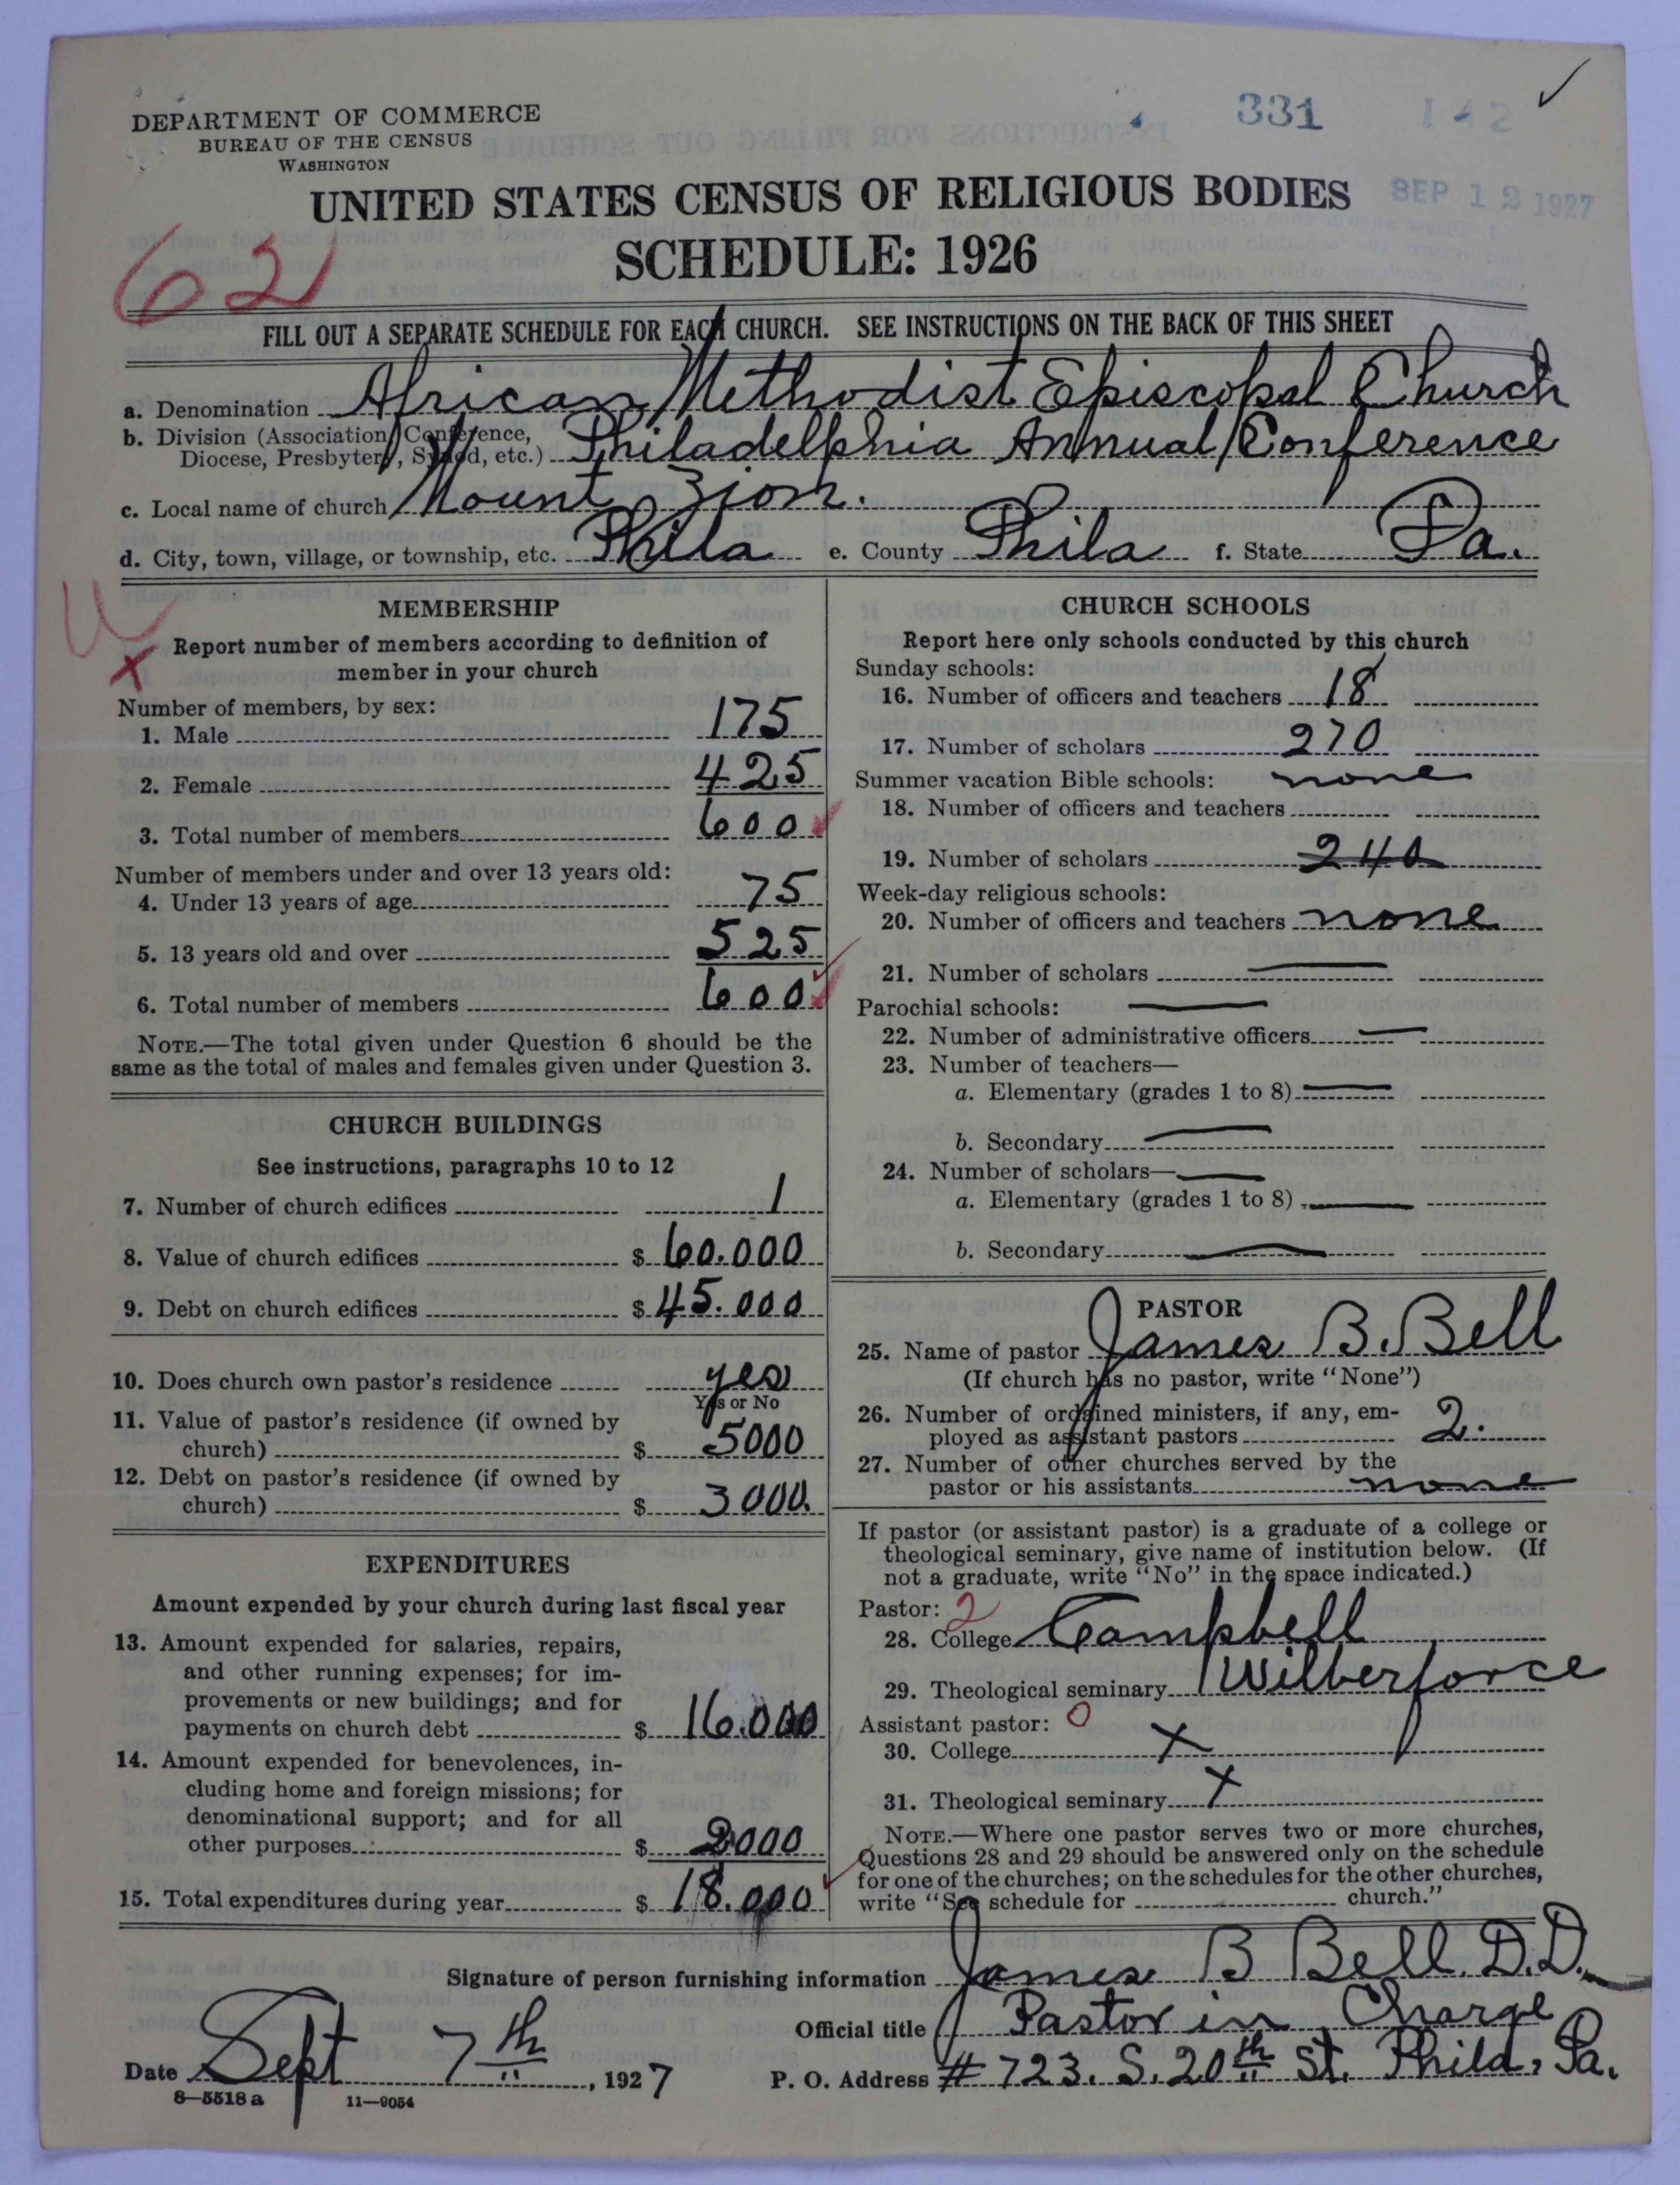 331
142
DEPARTMENT OF COMMERCE
BUREAU OF THE CENSUS
WASHINGTON
UNITED STATES CENSUS OF RELIGIOUS BODIES
SEP 12 1927
SCHEDULE: 1926
621
FILL OUT A SEPARATE SCHEDULE FOR EACH CHURCH. SEE INSTRUCTIONS ON THE BACK OF THIS SHEET
a. Denomination African Methodist Episcopal Church
b. Division (Association, Conference,
Diocese, Presbytery, Synod, etc.) Philadelphia Annual Conference
c. Local name of church Mount Zion.
d. City, town, village, or township, etc. Phila e. County Phila f. State Pa.
MEMBERSHIP
Report number of members according to definition of
member in your church
Number of members, by sex:
1. Male 175
2. Female 425
3. Total number of members 600
Number of members under and over 13 years old:
4. Under 13 years of age 75
5. 13 years old and over 525
6. Total number of members 600
NOTE.—The total given under Question 6 should be the
same as the total of males and females given under Question 3.
CHURCH BUILDINGS
See instructions, paragraphs 10 to 12
7. Number of church edifices 1
8. Value of church edifices $ 60.000
9. Debt on church edifices $ 45.000
10. Does church own pastor's residence yes
Yes or No
11. Value of pastor's residence (if owned by
church) $ 5000
12. Debt on pastor's residence (if owned by
church) $ 3000.
EXPENDITURES
Amount expended by your church during last fiscal year
13. Amount expended for salaries, repairs,
and other running expenses; for im-
provements or new buildings; and for
payments on church debt $ 16.000
14. Amount expended for benevolences, in-
cluding home and foreign missions; for
denominational support; and for all
other purposes $ 2000
15. Total expenditures during year $ 18.000
CHURCH SCHOOLS
Report here only schools conducted by this church
Sunday schools:
16. Number of officers and teachers 18
17. Number of scholars 270
Summer vacation Bible schools: none
18. Number of officers and teachers
19. Number of scholars 240
Week-day religious schools:
20. Number of officers and teachers none
21. Number of scholars
Parochial schools:
22. Number of administrative officers
23. Number of teachers—
a. Elementary (grades 1 to 8)
b. Secondary
24. Number of scholars—
a. Elementary (grades 1 to 8)
b. Secondary
PASTOR
25. Name of pastor James B. Bell
(If church has no pastor, write "None")
26. Number of ordained ministers, if any, em-
ployed as assistant pastors 2.
27. Number of other churches served by the
pastor or his assistants none
If pastor (or assistant pastor) is a graduate of a college or
theological seminary, give name of institution below. (If
not a graduate, write "No" in the space indicated.)
Pastor: 2
28. College Campbell
29. Theological seminary Wilberforce
Assistant pastor: 0
30. College X
31. Theological seminary X
NOTE.—Where one pastor serves two or more churches,
Questions 28 and 29 should be answered only on the schedule
for one of the churches; on the schedules for the other churches,
write "See schedule for church."
Signature of person furnishing information James B Bell. D.D.
Official title Pastor in Charge
Date Sept 7th, 1927 P. O. Address # 723. S. 20th St. Phila, Pa.
8—5518 a 11—9054